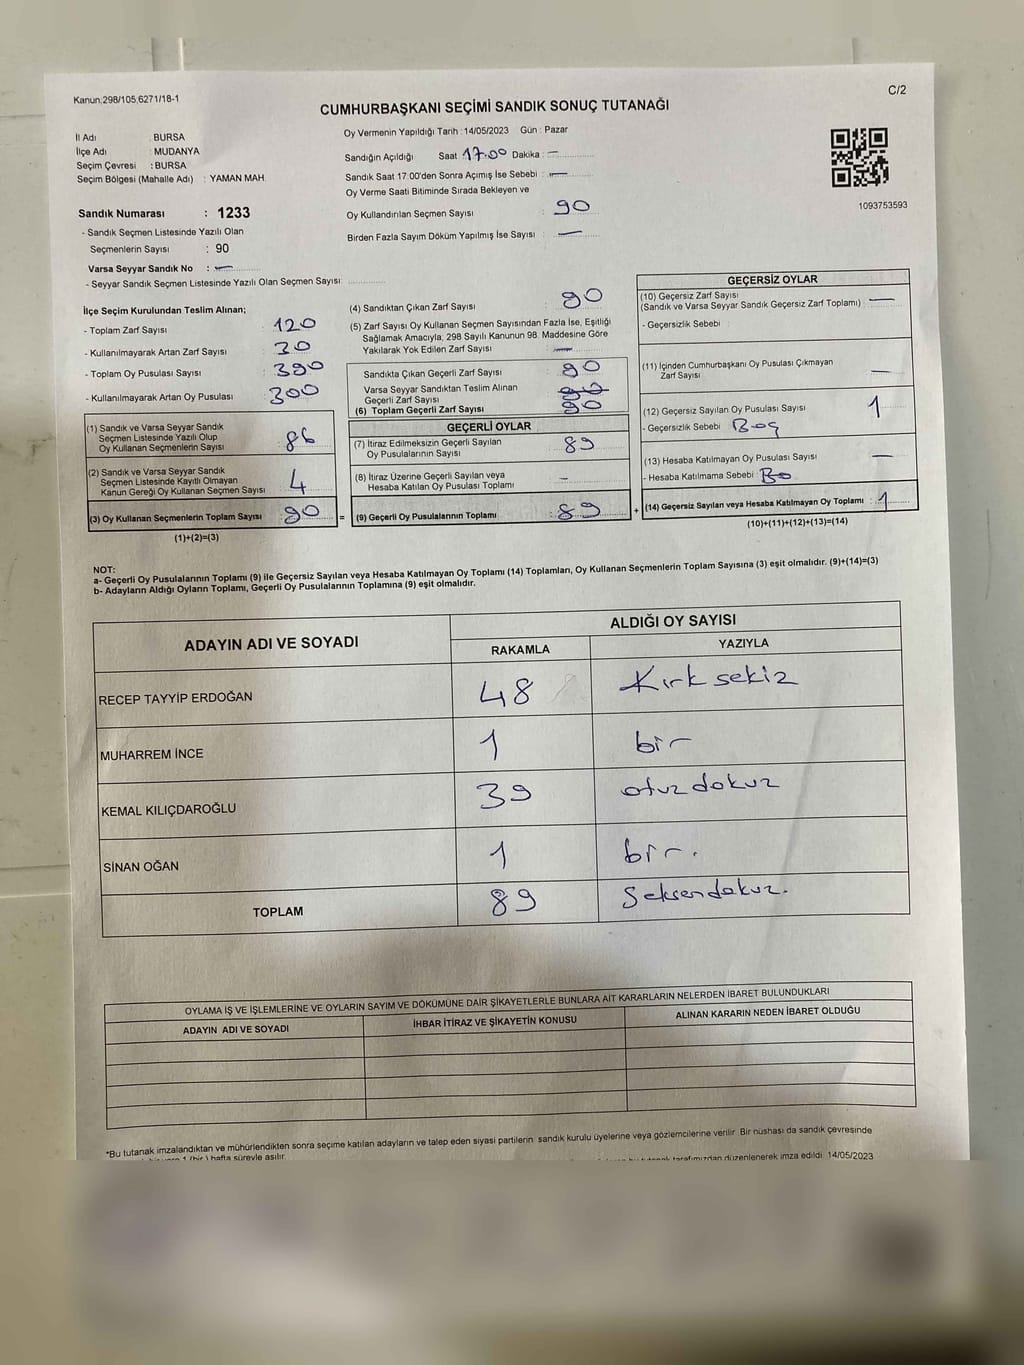 Kanun:298/105;6271/18-1
C/2
CUMHURBAŞKANI SEÇİMİ SANDIK SONUÇ TUTANAĞI
İl Adı : BURSA
İlçe Adı : MUDANYA
Seçim Çevresi : BURSA
Seçim Bölgesi (Mahalle Adı) : YAMAN MAH.
Sandık Numarası : 1233
- Sandık Seçmen Listesinde Yazılı Olan
Seçmenlerin Sayısı : 90
Varsa Seyyar Sandık No : —
- Seyyar Sandık Seçmen Listesinde Yazılı Olan Seçmen Sayısı:
Oy Vermenin Yapıldığı Tarih : 14/05/2023 Gün : Pazar
Sandığın Açıldığı Saat 17.00 Dakika : —
Sandık Saat 17:00'den Sonra Açımış İse Sebebi : —
Oy Verme Saati Bitiminde Sırada Bekleyen ve
Oy Kullandırılan Seçmen Sayısı : 90
Birden Fazla Sayım Döküm Yapılmış İse Sayısı : —
1093753593
İlçe Seçim Kurulundan Teslim Alınan;
- Toplam Zarf Sayısı : 120
- Kullanılmayarak Artan Zarf Sayısı : 30
- Toplam Oy Pusulası Sayısı : 390
- Kullanılmayarak Artan Oy Pusulası : 300
(1) Sandık ve Varsa Seyyar Sandık
Seçmen Listesinde Yazılı Olup
Oy Kullanan Seçmenlerin Sayısı : 86
(2) Sandık ve Varsa Seyyar Sandık
Seçmen Listesinde Kayıtlı Olmayan
Kanun Gereği Oy Kullanan Seçmen Sayısı : 4
(3) Oy Kullanan Seçmenlerin Toplam Sayısı : 90
(1)+(2)=(3)
(4) Sandıktan Çıkan Zarf Sayısı : 90
(5) Zarf Sayısı Oy Kullanan Seçmen Sayısından Fazla İse, Eşitliği
Sağlamak Amacıyla, 298 Sayılı Kanunun 98. Maddesine Göre
Yakılarak Yok Edilen Zarf Sayısı : —
Sandıkta Çıkan Geçerli Zarf Sayısı : 90
Varsa Seyyar Sandıktan Teslim Alınan
Geçerli Zarf Sayısı
(6) Toplam Geçerli Zarf Sayısı : 90
GEÇERLİ OYLAR
(7) İtiraz Edilmeksizin Geçerli Sayılan
Oy Pusulalarının Sayısı : 89
(8) İtiraz Üzerine Geçerli Sayılan veya
Hesaba Katılan Oy Pusulası Toplamı : —
= (9) Geçerli Oy Pusulalarının Toplamı : 89 +
GEÇERSİZ OYLAR
(10) Geçersiz Zarf Sayısı
(Sandık ve Varsa Seyyar Sandık Geçersiz Zarf Toplamı) : —
- Geçersizlik Sebebi
(11) İçinden Cumhurbaşkanı Oy Pusulası Çıkmayan
Zarf Sayısı : —
(12) Geçersiz Sayılan Oy Pusulası Sayısı : 1
- Geçersizlik Sebebi
(13) Hesaba Katılmayan Oy Pusulası Sayısı : —
- Hesaba Katılmama Sebebi
(14) Geçersiz Sayılan veya Hesaba Katılmayan Oy Toplamı : 1
(10)+(11)+(12)+(13)=(14)
NOT:
a- Geçerli Oy Pusulalarının Toplamı (9) ile Geçersiz Sayılan veya Hesaba Katılmayan Oy Toplamı (14) Toplamları, Oy Kullanan Seçmenlerin Toplam Sayısına (3) eşit olmalıdır. (9)+(14)=(3)
b- Adayların Aldığı Oyların Toplamı, Geçerli Oy Pusulalarının Toplamına (9) eşit olmalıdır.
ADAYIN ADI VE SOYADI
ALDIĞI OY SAYISI
RAKAMLA YAZIYLA
RECEP TAYYİP ERDOĞAN 48 Kırk sekiz
MUHARREM İNCE 1 bir
KEMAL KILIÇDAROĞLU 39 otuz dokuz
SİNAN OĞAN 1 bir.
TOPLAM 89 Seksendokuz.
OYLAMA İŞ VE İŞLEMLERİNE VE OYLARIN SAYIM VE DÖKÜMÜNE DAİR ŞİKAYETLERLE BUNLARA AİT KARARLARIN NELERDEN İBARET BULUNDUKLARI
ADAYIN ADI VE SOYADI İHBAR İTİRAZ VE ŞİKAYETİN KONUSU ALINAN KARARIN NEDEN İBARET OLDUĞU
*Bu tutanak imzalandıktan ve mühürlendikten sonra seçime katılan adayların ve talep eden siyasi partilerin sandık kurulu üyelerine veya gözlemcilerine verilir. Bir nüshası da sandık çevresinde
1 (bir) hafta süreyle asılır.
tarafımızdan düzenlenerek imza edildi. 14/05/2023